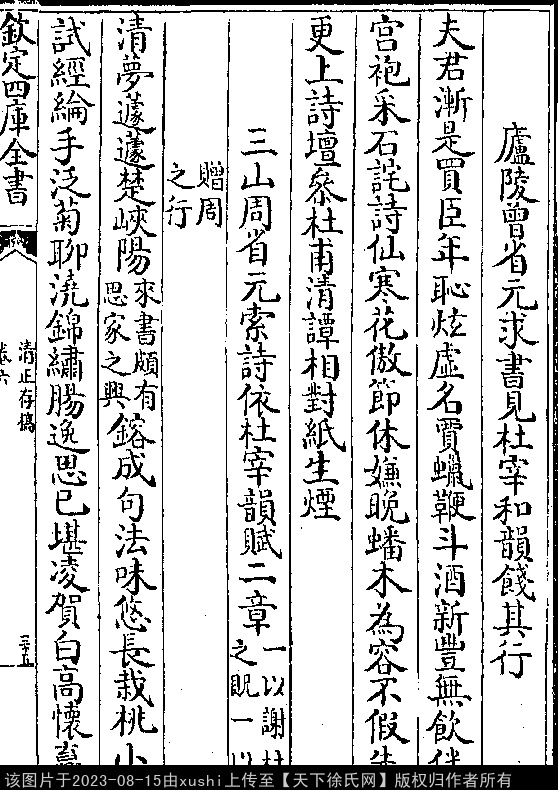 廬陵曾省元求書見杜宰和韻餞其行
夫君漸是買臣年恥炫虛名賈蠟鞭斗酒新豐無飲伴
宮袍采石詫詩仙寒花傲節休嫌晚蟠木為容不假
更上詩壇叅杜甫清譚相對紙生煙
三山周省元索詩依杜宰韻賦二章一以謝杜之貺一以
贈周之行
清夢蘧蘧楚峽陽來書頗有思家之興鎔成句法味悠長栽桃小
試經綸手泛菊聊澆錦繡腸逸思已堪凌賀白高懷
欽定四庫全書
清正存稿
卷六
三十五
该图片于2023-08-15由xushi上传至【天下徐氏网】版权归作者所有